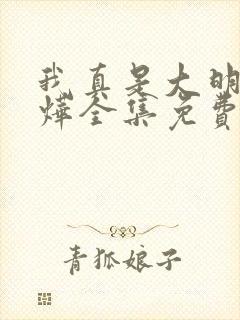 我真是大明
烨全集免費
青狐娘子